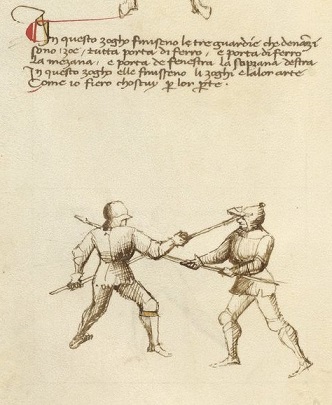 In questo zogho finiseno le tre guardie che denanzi
sono zoe tutta porta di ferro, e porta di ferro
la mezana, e porta de fenestra la soprana destra
In questo zogho elle finisseno li zoghi e la lor arte
Come io fiero chostui per lor parte.